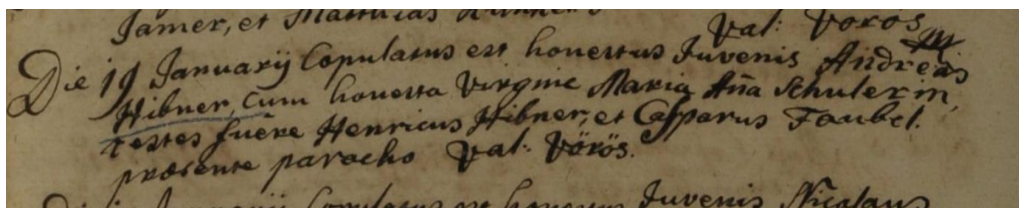 Jamer, et Matthias
Val: Vörös
Die 19 Januarij Copulatus est honestus Juvenis Andreas
Hibner, cum honesta Virgine Maria Aña Schulerin,
testes fuêre Henricus Hibner, et Casparus Faubel.
præsente parocho Val: Vörös.
Januarij Copulatus est honestus Juvenis Nicolaus